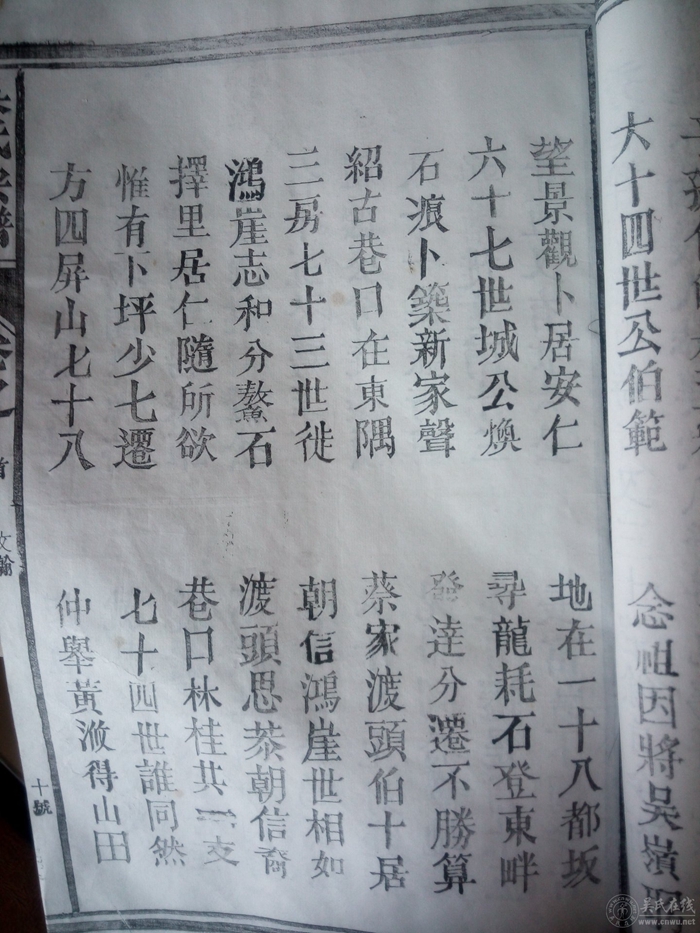 大十四世公伯範
念祖因將吴嶺
望景觀卜居安仁
地在一十八都坂
六十七世城公煥
尋龍耗石登東畔
石痕卜築新家聲
發達分遷不勝算
紹古巷口在東隅
蔡家渡頭伯十居
三房七十三世徙
朝信鴻崖世相如
鴻崖志和分鰲石
渡頭思恭朝信裔
擇里居仁隨所欲
巷口林桂共一支
惟有下坪少七遷
七十四世誰同然
方四屏山七十八
仲舉黃潋得山田
氏宗譜
首
文翰
十號
吴氏在线
www.cnwu.net